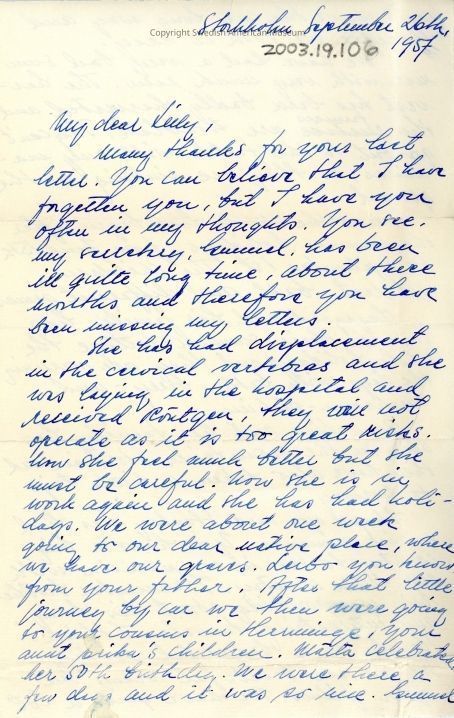 Stockholm September 26th,
Copyright Swedish American Museum
2003.19.106
1957
My dear Lilly,
Many thanks for your last
letter. You can believe that I have
forgetten you, but I have you
often in my thoughts. You see,
my secretary, Gunnel, has been
ill quite long time, about three
months and therefore you have
been missing my letters.
She has had displacement
in the cervical vertebras and she
was laying in the hospital and
received Röntgen, they will not
operate as it is too great risks.
Now she feel much better but she
must be careful. Now she is in
work again and she has had holi-
days. We were about one week
going to our dear native place, where
we have our graves. Lerbo you know
from your father. After that little
journey by car we then were going
to your cousins in Herminge, your
aunt Erika's children. Märta celebrated
her 50th birthday. We were there a
few days and it was so nice. Gunnel